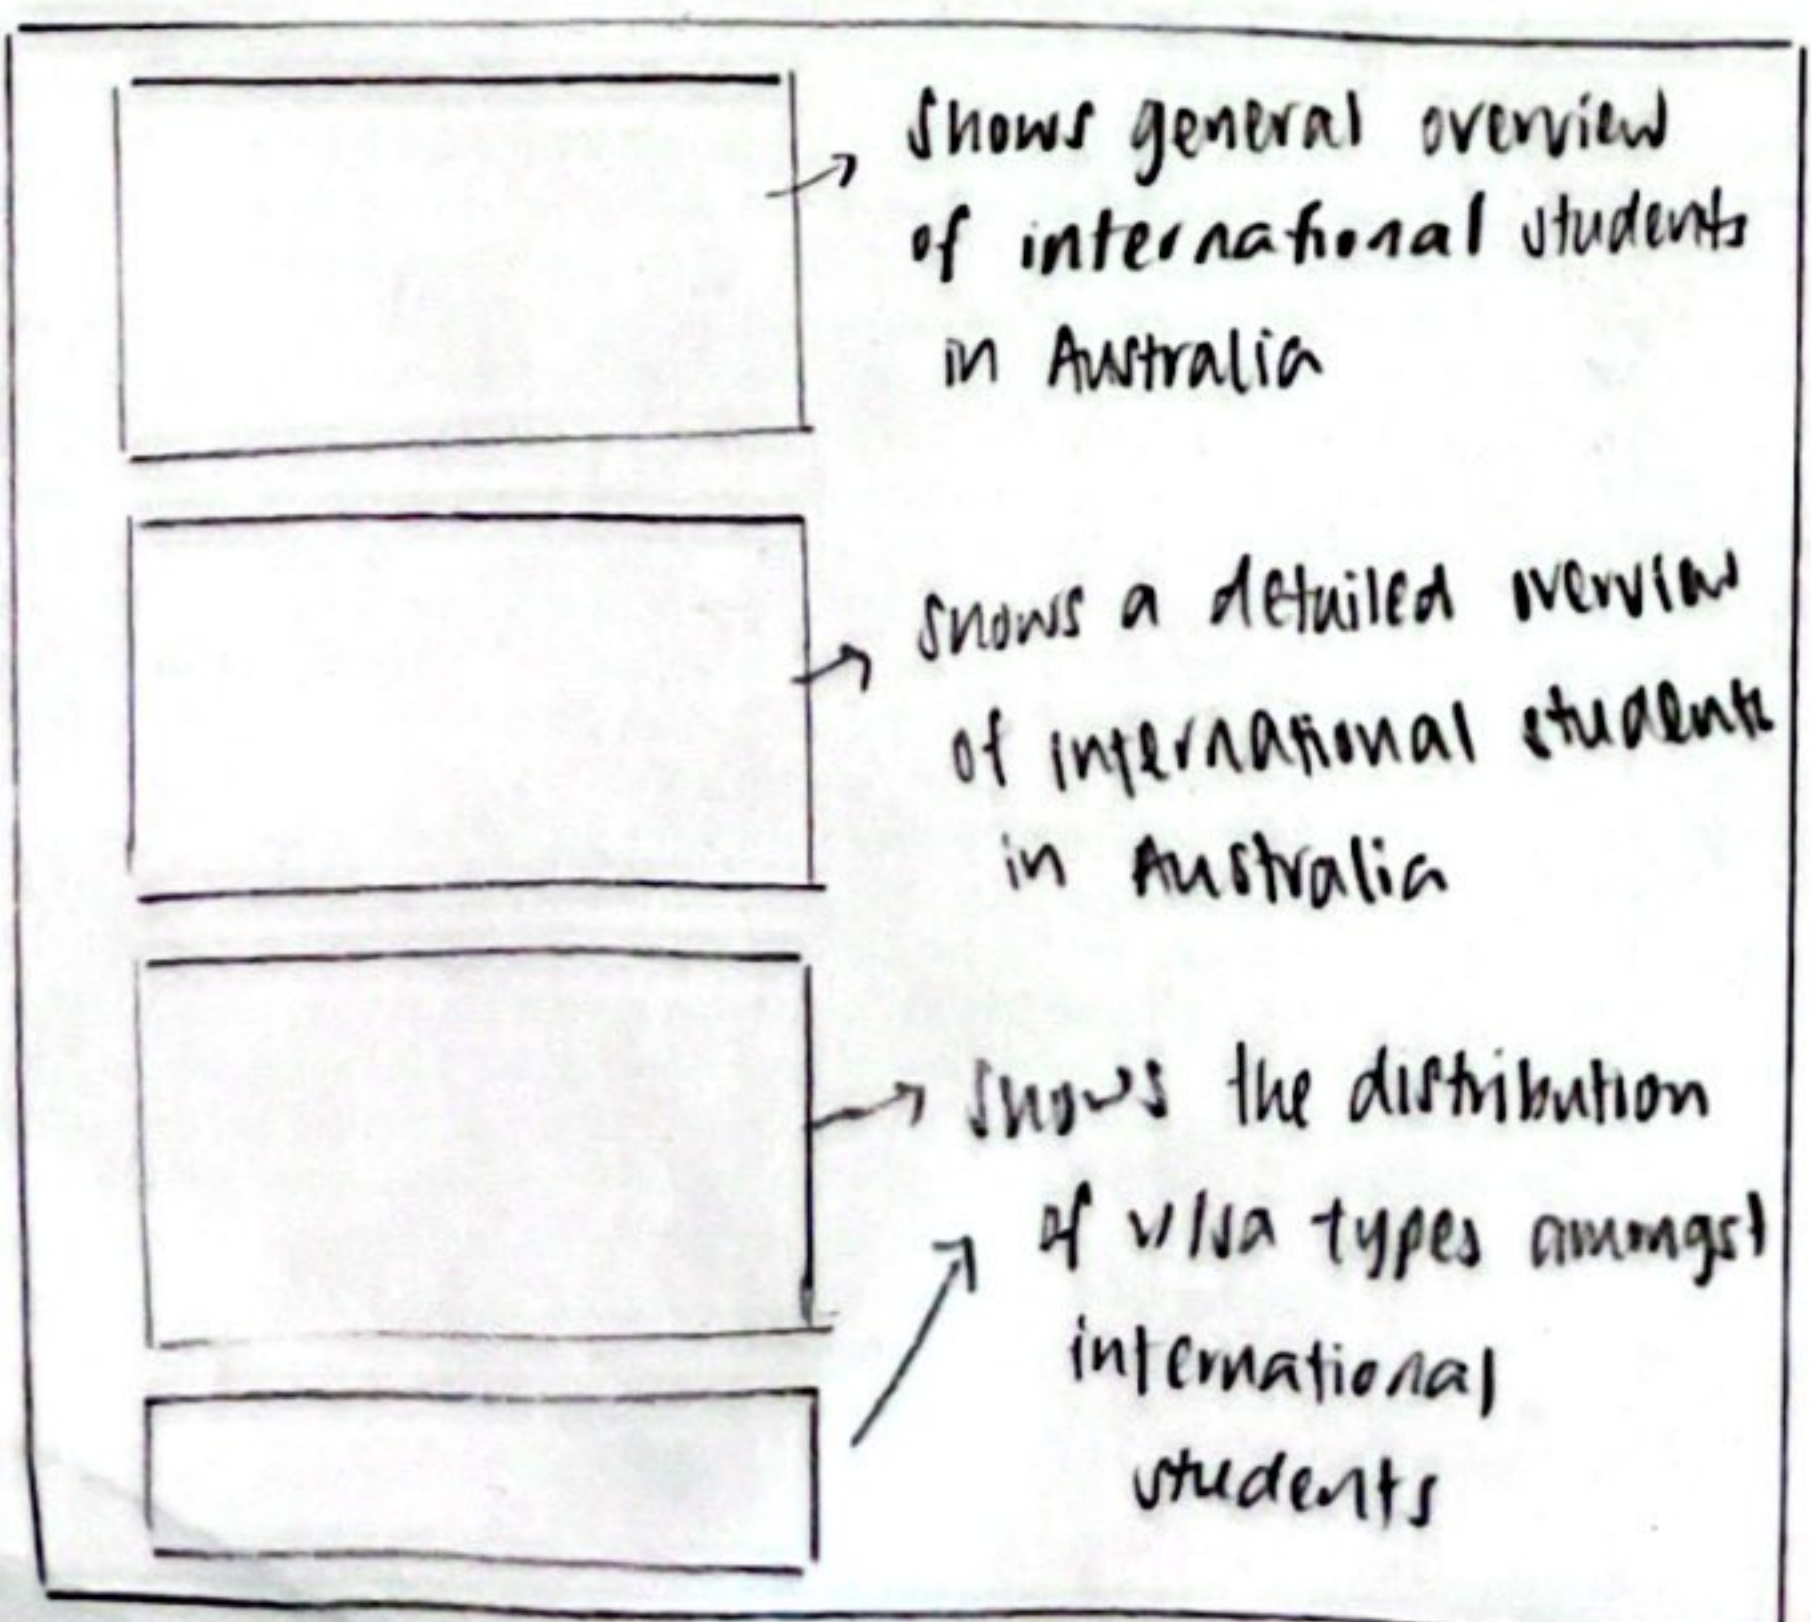 shows general overview
of international students
in Australia
shows a detailed overview
of international students
in Australia
shows the distribution
of visa types amongst
international
students